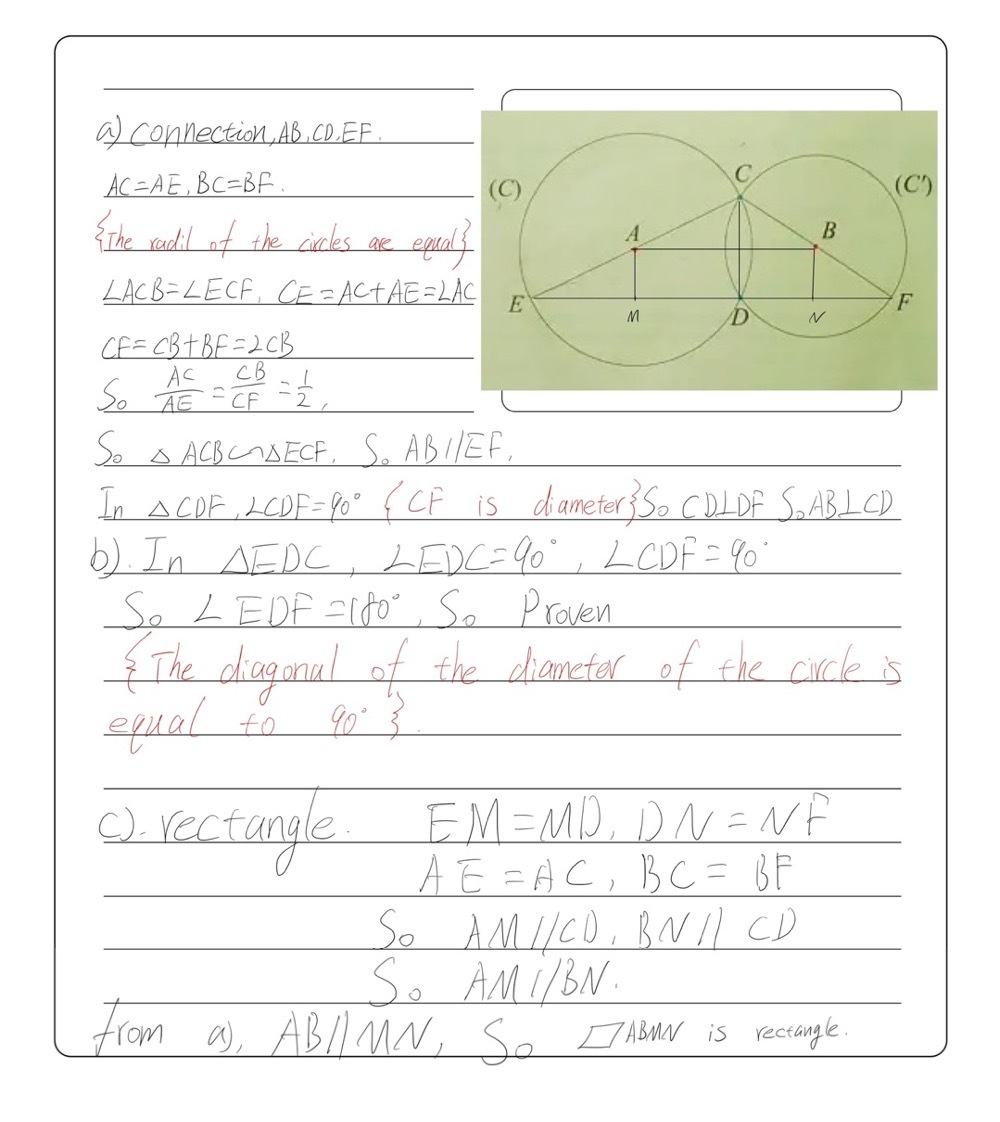 a) connection, AB, CD, EF.
AC=AE, BC=BF.
{The radil of the circles are equal}
∠ACB=∠ECF, CE=AC+AE=2AC
CF=CB+BF=2CB
So AC/AE = CB/CF = 1/2,
So △ACB∽△ECF. So AB//EF.
In △CDF, ∠CDF=90° {CF is diameter} So CD⊥DF So AB⊥CD
b). In △EDC, ∠EDC=90°, ∠CDF=90°
So ∠EDF=180°, So Proven
{The diagonal of the diameter of the circle is
equal to 90°}.
c). rectangle. EM=MD, DN=NF
AE=AC, BC=BF
So AM//CD, BN//CD
So AM//BN.
from a), AB//MN, So ▱ABMN is rectangle.
(C)
C
(C')
A
B
E
M
D
N
F